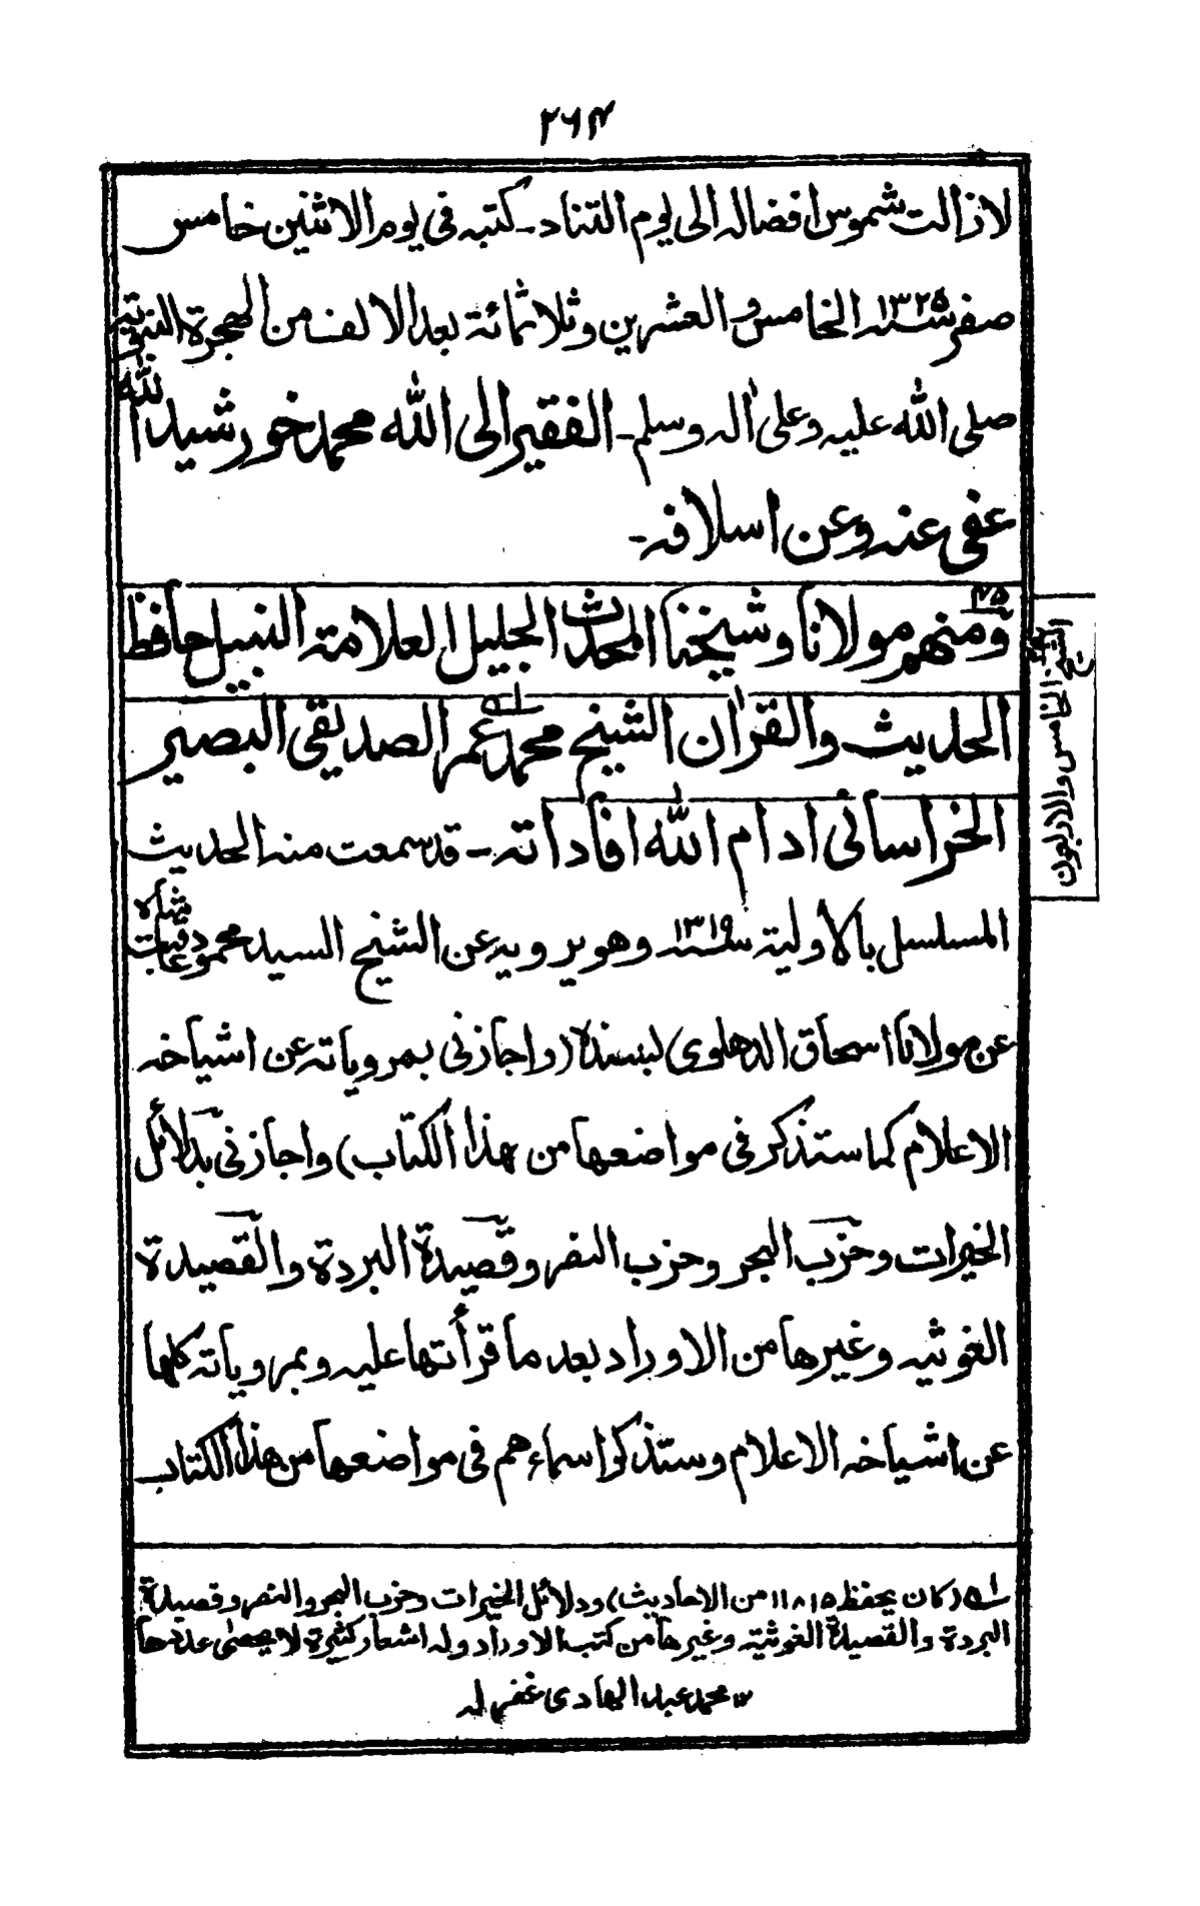 ۲۶۴
لازالت شموس افضاله الى يوم التناد - كتبه فى يوم الاثنين خامس
صفر سنه ۱۳۲۵ الخامس والعشرين وثلاثمائة بعد الالف من الهجرة النبوية
صلى الله عليه وعلى اله وسلم - الفقير الى الله محمد خورشيد الله
عفى عنه وعن اسلافه -
۴۵ ومنهم مولانا وشيخنا المحدث الجليل العلامة النبيل حافظ
الحديث والقران الشيخ محمد عمر الصديقى البصير
الخراسانى ادام الله افاداته - قد سمعت منه الحديث
المسلسل بالاولية سنه ۱۳۱۹ وهو يرويه عن الشيخ السيد محمود شاه
عن مولانا اسحاق الدهلوى بسنده (واجازنى بمروياته عن اشياخه
الاعلام كما ستذكر فى مواضعها من هذا الكتاب) واجازنى بدلائل
الخيرات وحزب البحر وحزب النصر وقصيدة البردة والقصيدة
الغوثيه وغيرها من الاوراد بعد ما قرأتها عليه وبمروياته كلها
عن اشياخه الاعلام وستذكر اسماءهم فى مواضعها من هذا الكتاب
الشيخ الخامس والاربعون
له (كان يحفظ ۱۱۸۱۵ من الاحاديث) ودلائل الخيرات وحزب البحر والنصر وقصيدة
البردة والقصيدة الغوثية وغيرها من كتب الاوراد وله اشعار كثيرة لا يحصى عددها
۱۲ محمد عبد الهادى غفر له